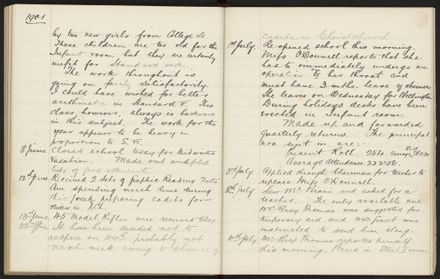 1901
by two new girls from College St.
These children are too old for the
Infant room but they are certainly
unfit for Standard work.
The work throughout is
going on fairly satisfactorily.
I could have wished for better
arithmetic in Standard V. This
class, however, always is backward
in this subject. The work for the
year appears to be heavy in
proportion to S. V.
8 June Closed school today for Midwinter
Vacation. Made out
12th June Received 2 sets of Graphic Readers
Am spending much time during
this week preparing cadets for
15th June 45 Model Rifles were received today.
22nd June It has been decided not to
reopen on 24th probably not
next week owing to absence of
cadets in Christchurch.
1st July Re-opened school this morning.
Miss O'Donnell reports that she
has to immediately undergo an
operation to her throat and
must have 3 mths. leave of absence.
She leaves on Wednesday for Wellington.
During holidays desks have been
erected in Infant room.
Made up and forwarded
Quarterly returns. The principal
nos. sent are:
Present Roll
Average Attendance
3rd July Applied through Chairman for teacher to
replace Miss O'Donnell.
8th July Saw Mr. and asked for a
teacher. The only available one
was suggested for
temporary aid and was
instructed to send him along.
10th July Mr. Thomas reported himself
this morning. Placed in